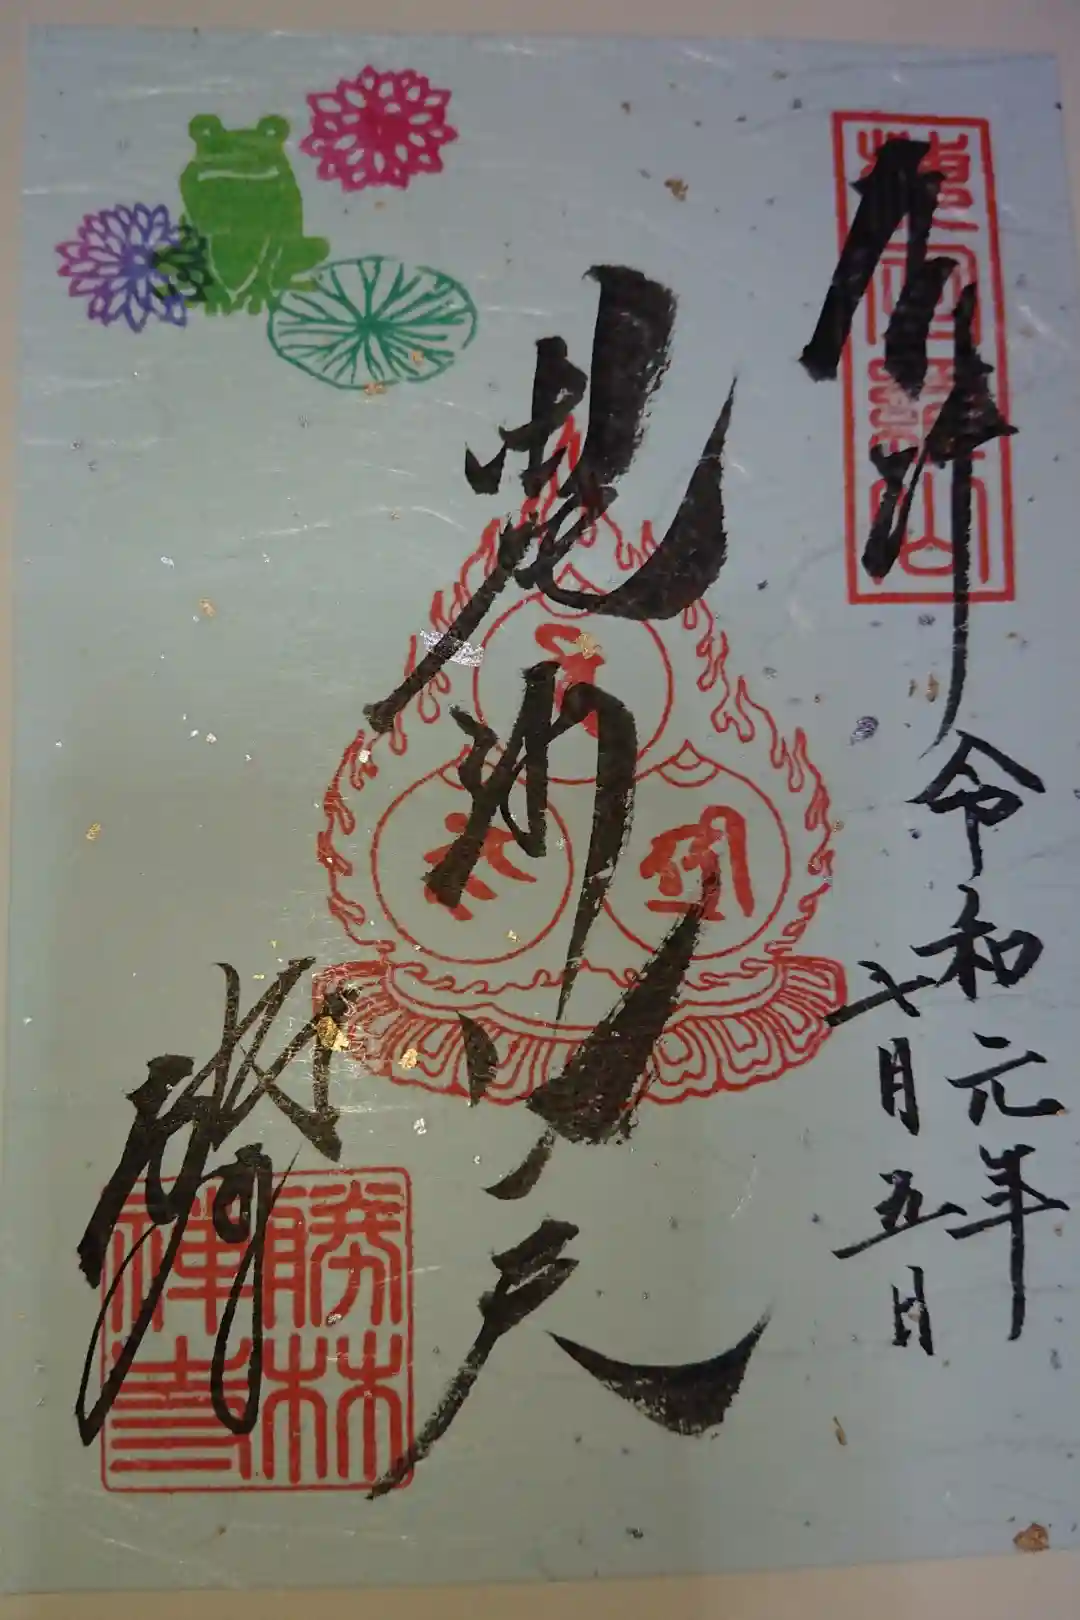 奉拝
令和元年
七月五日
毘沙門天
勝林
禪寺